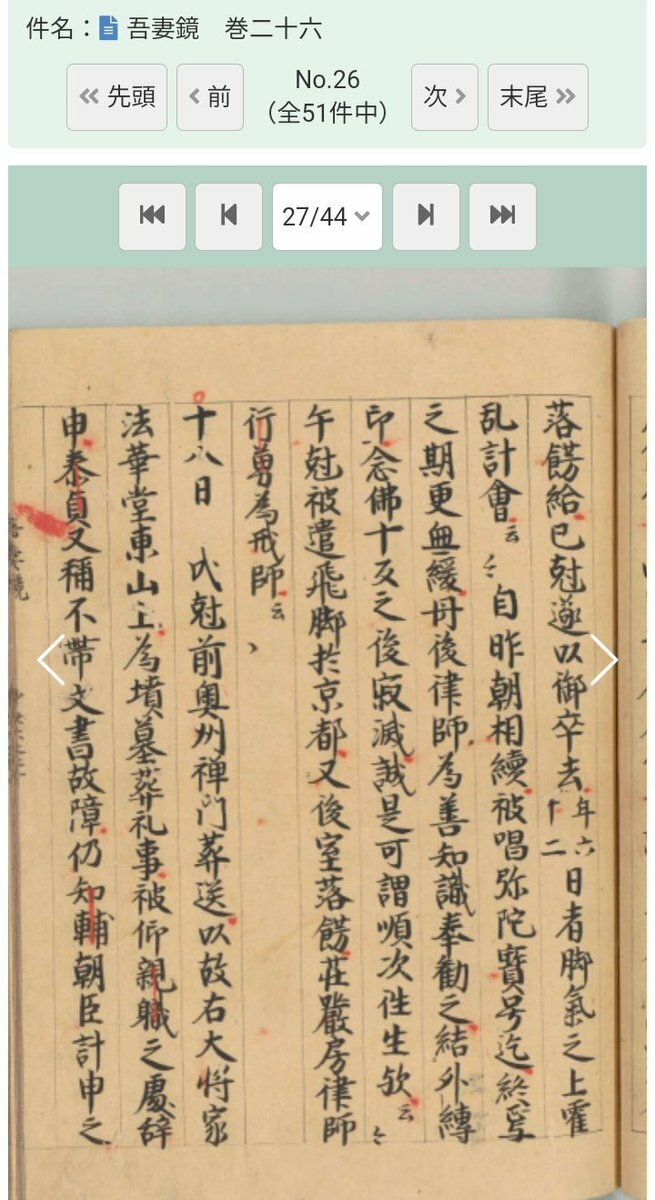 件名：吾妻鏡　巻二十六
先頭
前
No.26
（全51件中）
次
末尾
27/44
落餝給巳尅遂以御卒去年六十二日者脚氣之上霍
乱計會云々自昨朝相續被唱弥陀寳号迄終焉
之期更無緩丹後律師為善知識奉勸之結外縛
印念佛十反之後寂滅誠是可謂順次往生欤云々
午尅被遣飛脚於京都又後室落餝荘嚴房律師
行勇為戒師云々
十八日　戌尅前奥州禅門葬送以故右大将家
法華堂東山上為墳墓葬礼事被仰親職之處辞
申泰貞又稱不帯文書故障仍知輔朝臣計申之